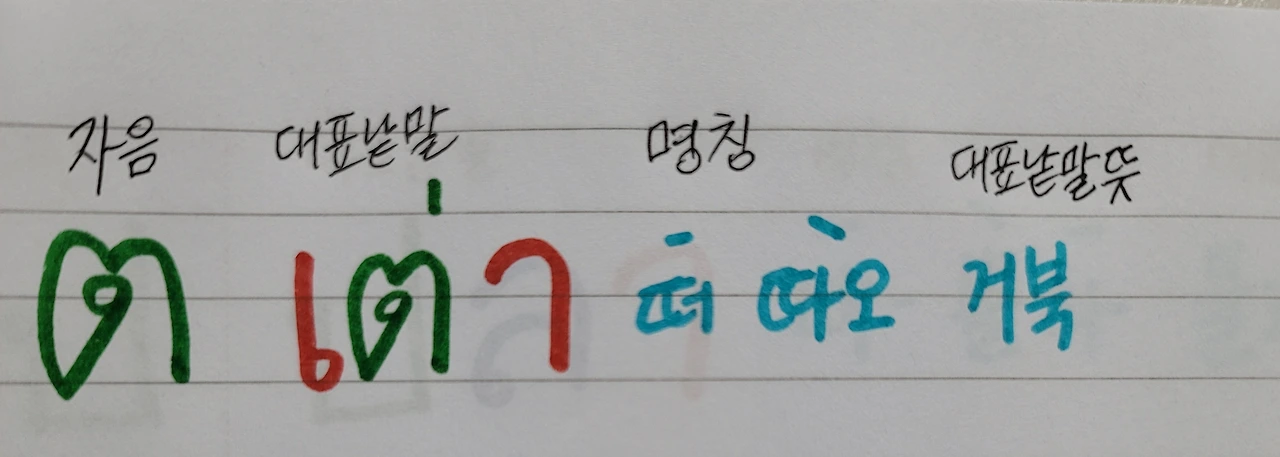 자음 대표낱말 명칭 대표낱말뜻
ต เต่า떠 따오 거북